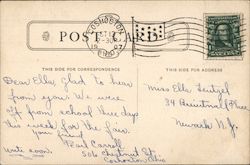 COSHOCTON
OHIO
POST CARD
THIS SIDE FOR CORRESPONDENCE
THIS SIDE FOR ADDRESS
Dear Ella, Glad to hear
from you. We were
off from school three days
this week for the fair.
Pearl Carroll
Write soon.
506 Chestnut St
Coshocton, Ohio
Miss Ella
34
Newark N.J.